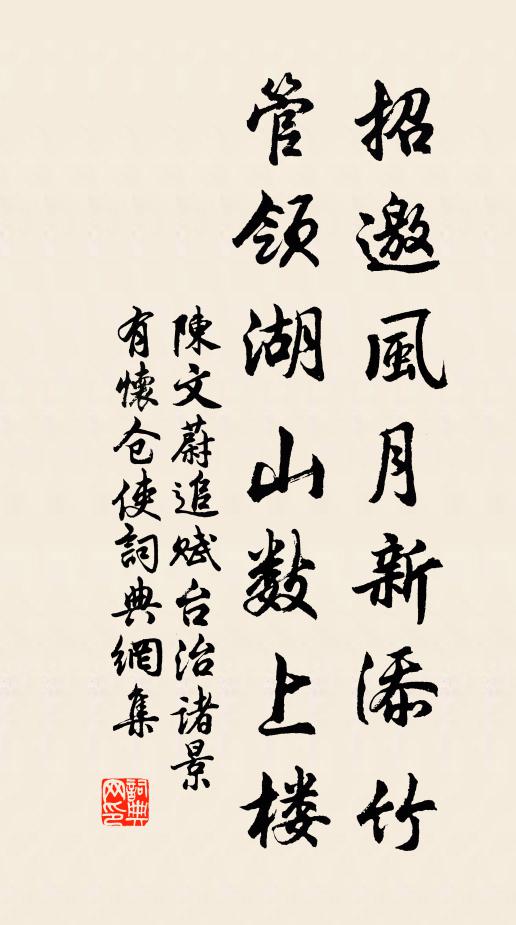 招邀風月新添竹
管領湖山数上楼
陳文蔚追赋台治諸景
有懷仓使詞典網集
詞典网印